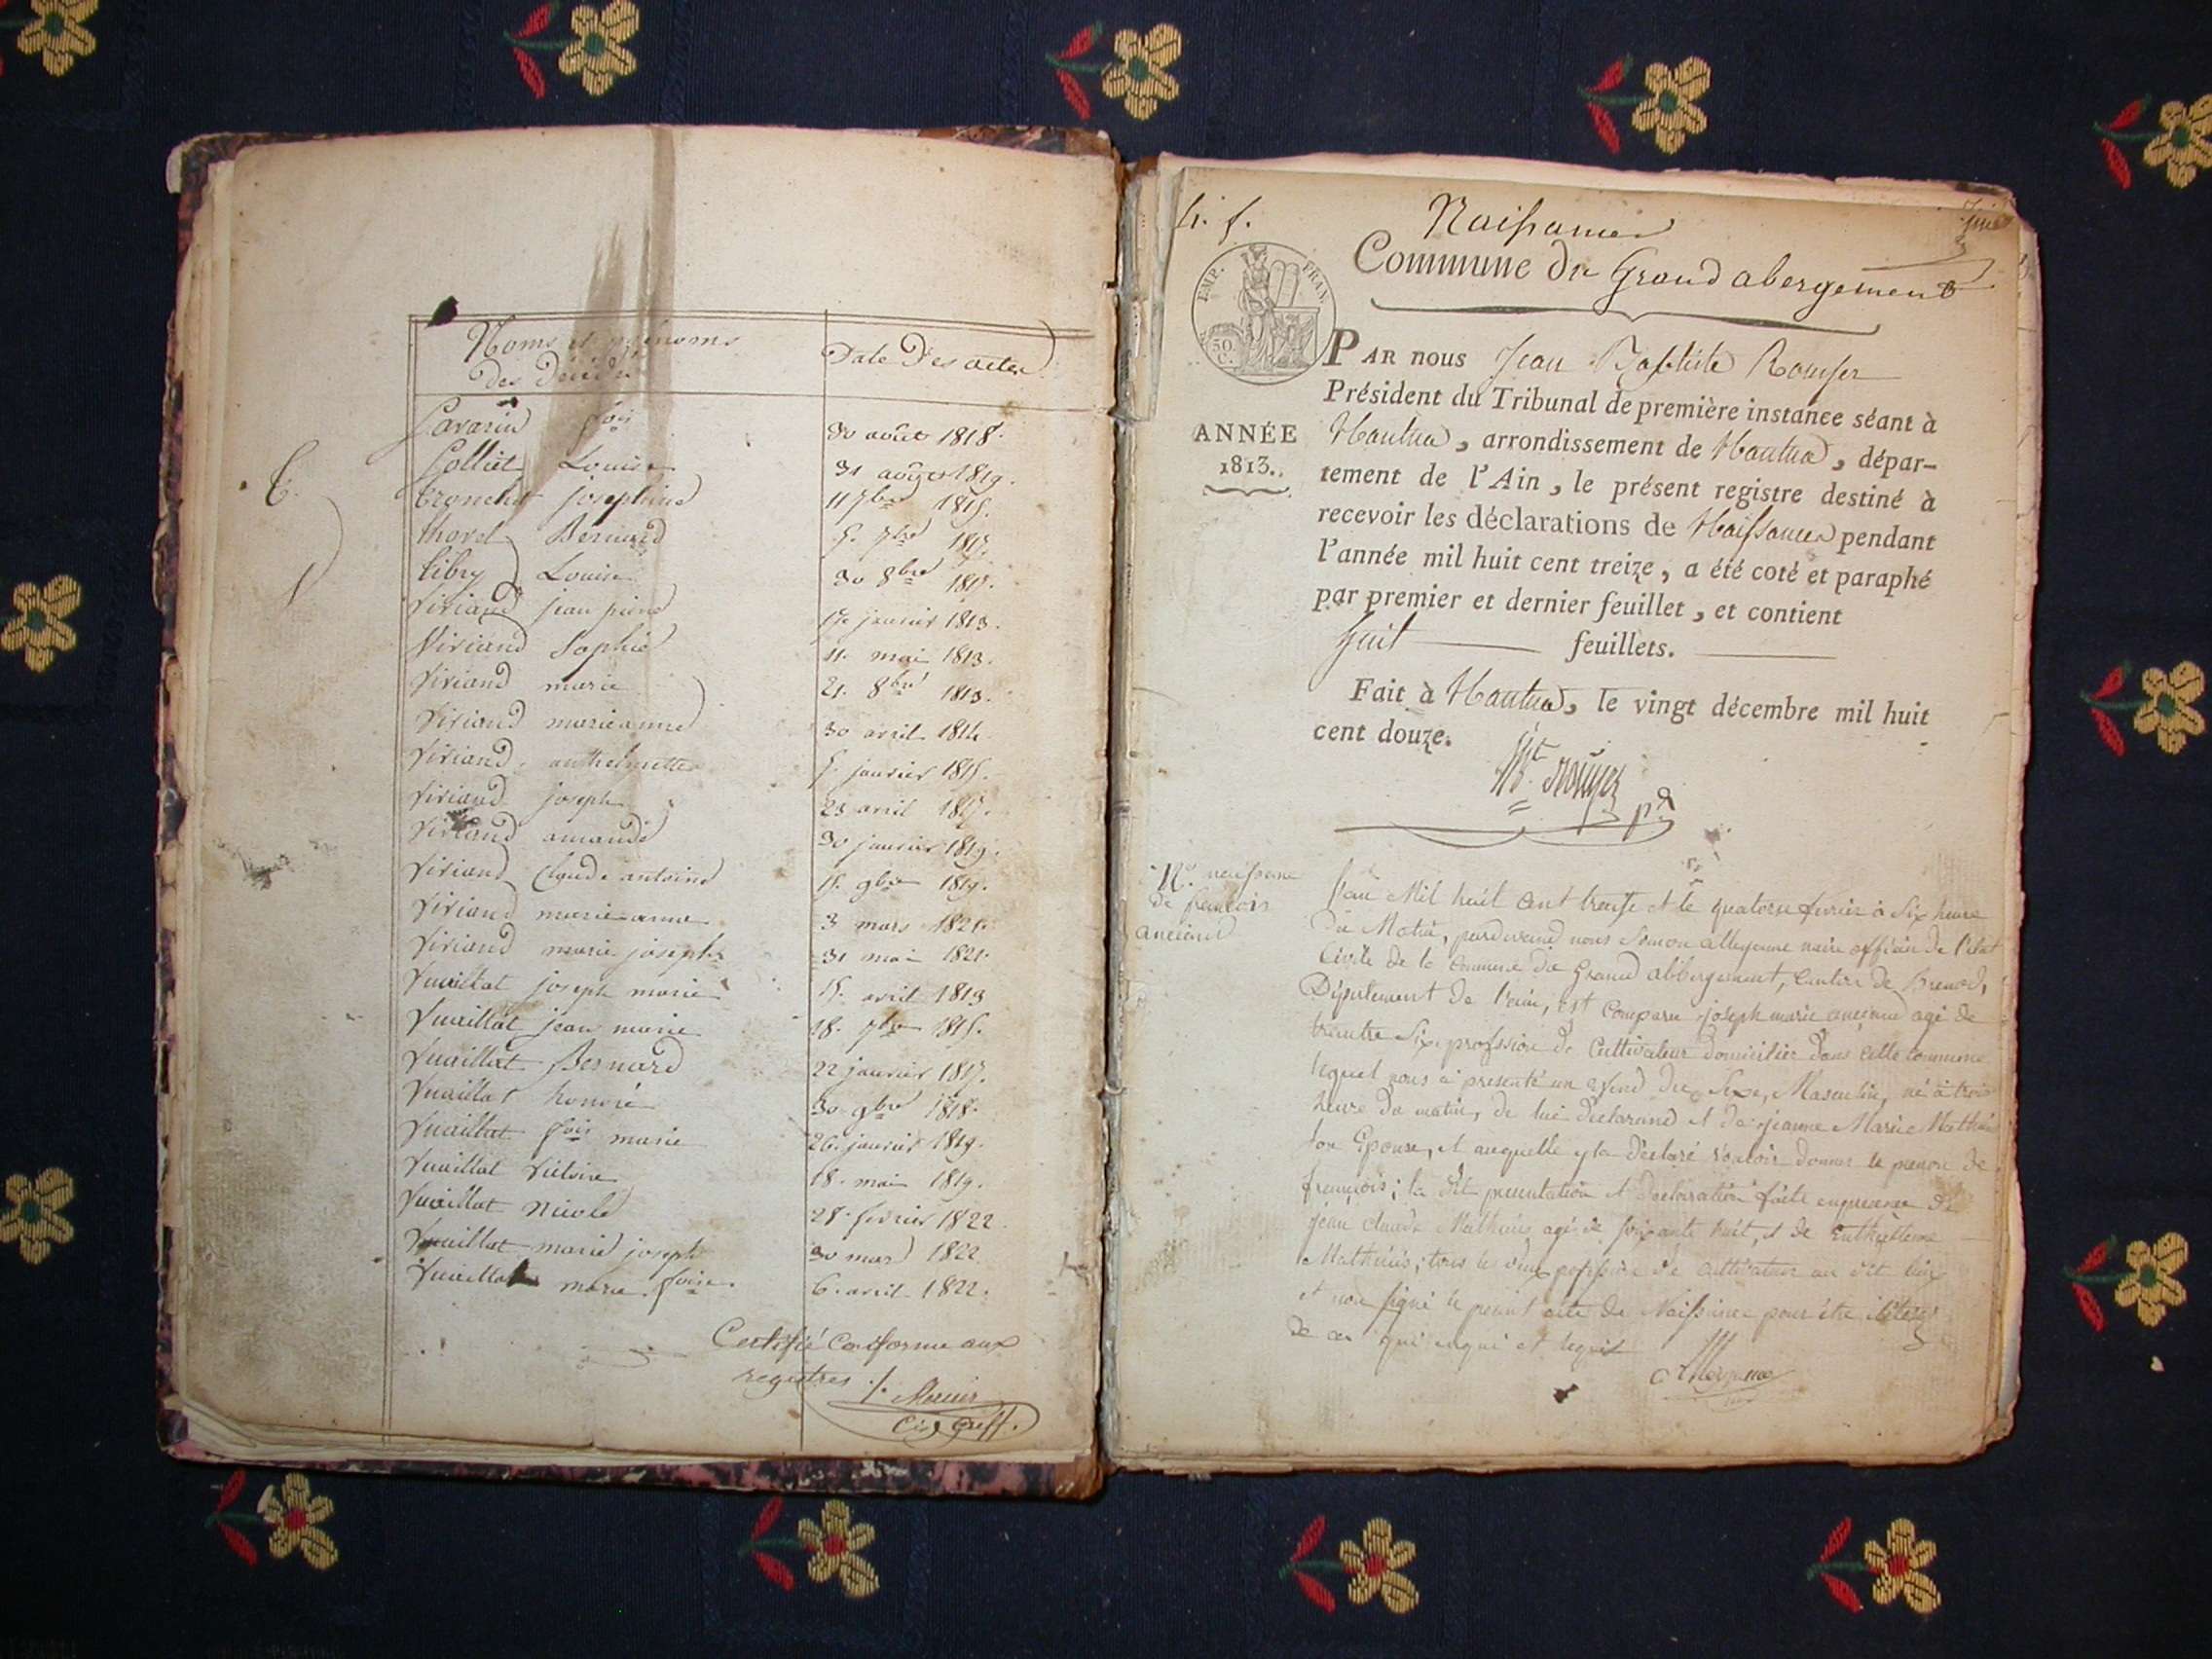 Noms et prénoms
des Décédés
Date des actes
Savarin fois 30 août 1818.
Solliet Louise 31 août 1819.
T. tronchet josephine 11 7bre 1815.
thovel Bernard 5. 7bre 1817.
tibry Louise 30 8bre 1817.
V Viviand jean pierre janvier 1813.
Viviand Sophie 11. mai 1813.
Viviand marie 21. 8bre 1813.
Viviand marieanne 30 avril 1814.
Viviand anthelmette 5. janvier 1815.
Viviand joseph 23 avril 1817.
Viviand amande 30 janvier 1819.
Viviand Claude antoine 15. 9bre 1819.
Viviand marie anne 3 mars 1821.
Viviand marie josephe 31 mai 1821.
Vuaillat joseph marie 15. avril 1813
Vuaillat jean marie 18. 7bre 1815.
Vuaillat Bernard 22 janvier 1817.
Vuaillat honoré 30. 9bre 1818.
Vuaillat fois marie 26. janvier 1819.
Vuaillat Victoire 18. mai 1819.
Vuaillat Nicole 28. février 1822.
Vuaillat marie joseph 30 mars 1822
Vuaillat marie foise. 6. avril 1822.
Certifié Conforme aux
registres
Naissances
Commune du Grand abergement
EMP. FRAN.
50.
C.
PAR nous Jean Baptiste Rouyer
Président du Tribunal de première instance séant à
ANNÉE
1813.
Nantua, arrondissement de Nantua, dépar-
tement de l'Ain, le présent registre destiné à
recevoir les déclarations de Naissances pendant
l'année mil huit cent treize, a été coté et paraphé
par premier et dernier feuillet, et contient
huit feuillets.
Fait à Nantua, le vingt décembre mil huit
cent douze.
Bt. Rouyer pdt
No. naissance
de francois
ancient
l'an Mil huit Cent treise et le quatorse fevrier à Six heure
Du Matin, pardevand nous Simon alleyenne maire officier de l'état
Civile de la Commune du Grand abbergement, Canton de Brenod,
Département de l'ain, est Comparu joseph marie agé de
trentre Six, profssion de Cultivateur domicilier dans cette Commune
lequel nous à presenté un enfend du Sexe, Masculin, né à trois
heure du matin, de lui declarand et de jeanne Marie
son Epouse, et auquelle y la Déclaré vouloir donner le prenom de
françois; la dit presentation et declaration faite
jean claude Mathieu agé de soixante huit, et de
Mathieu; tous les deux de cultivateur au dit lieu
et nou signé le present acte de Naissance pour être
de ce qui et